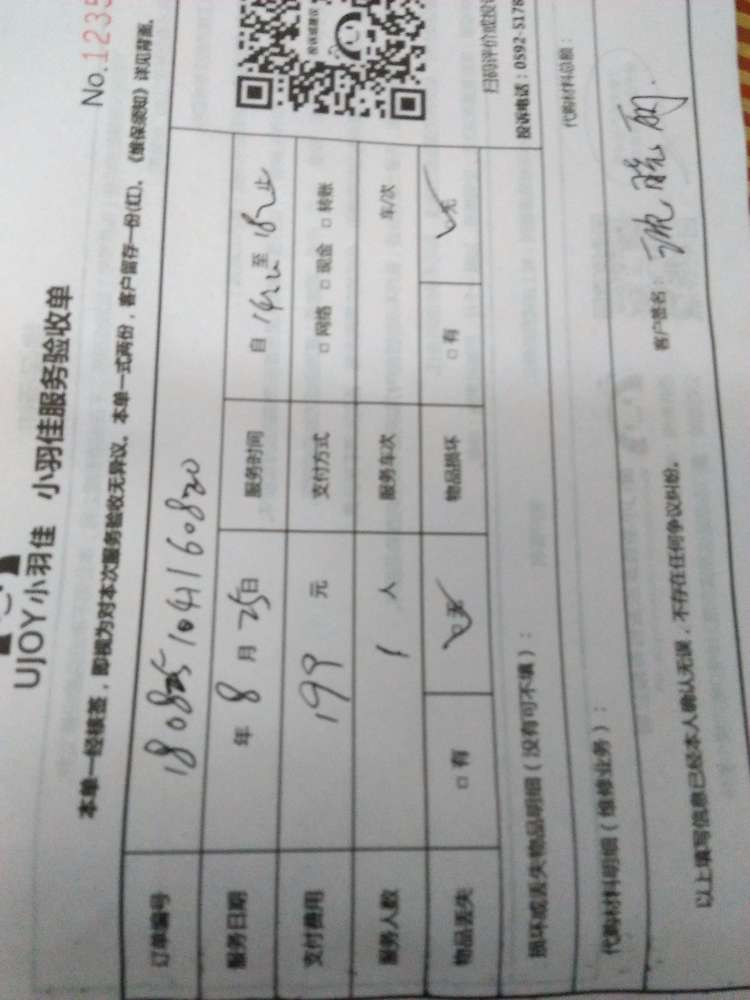 UJOY小羽佳 小羽佳服务验收单
No.1235
本单一经核签，即视为对本次服务验收无异议。本单一式两份，客户留存一份(红)。《维保须知》详见背面。
订单编号 180825104160820
服务日期 年 8 月 25 日 服务时间 自 至
支付费用 199 元 支付方式 □ 网络 □ 现金 □ 转账
服务人数 1 人 服务车次 车/次
物品丢失 □ 有 无 物品损坏 □ 有 无
投诉或建议
扫码评价或投
投诉电话：0592-5178
损坏或丢失物品明细（没有可不填）：
代购材料明细（维修业务）： 代购材料总额：
以上填写信息已经本人确认无误，不存在任何争议纠纷。 客户签名：